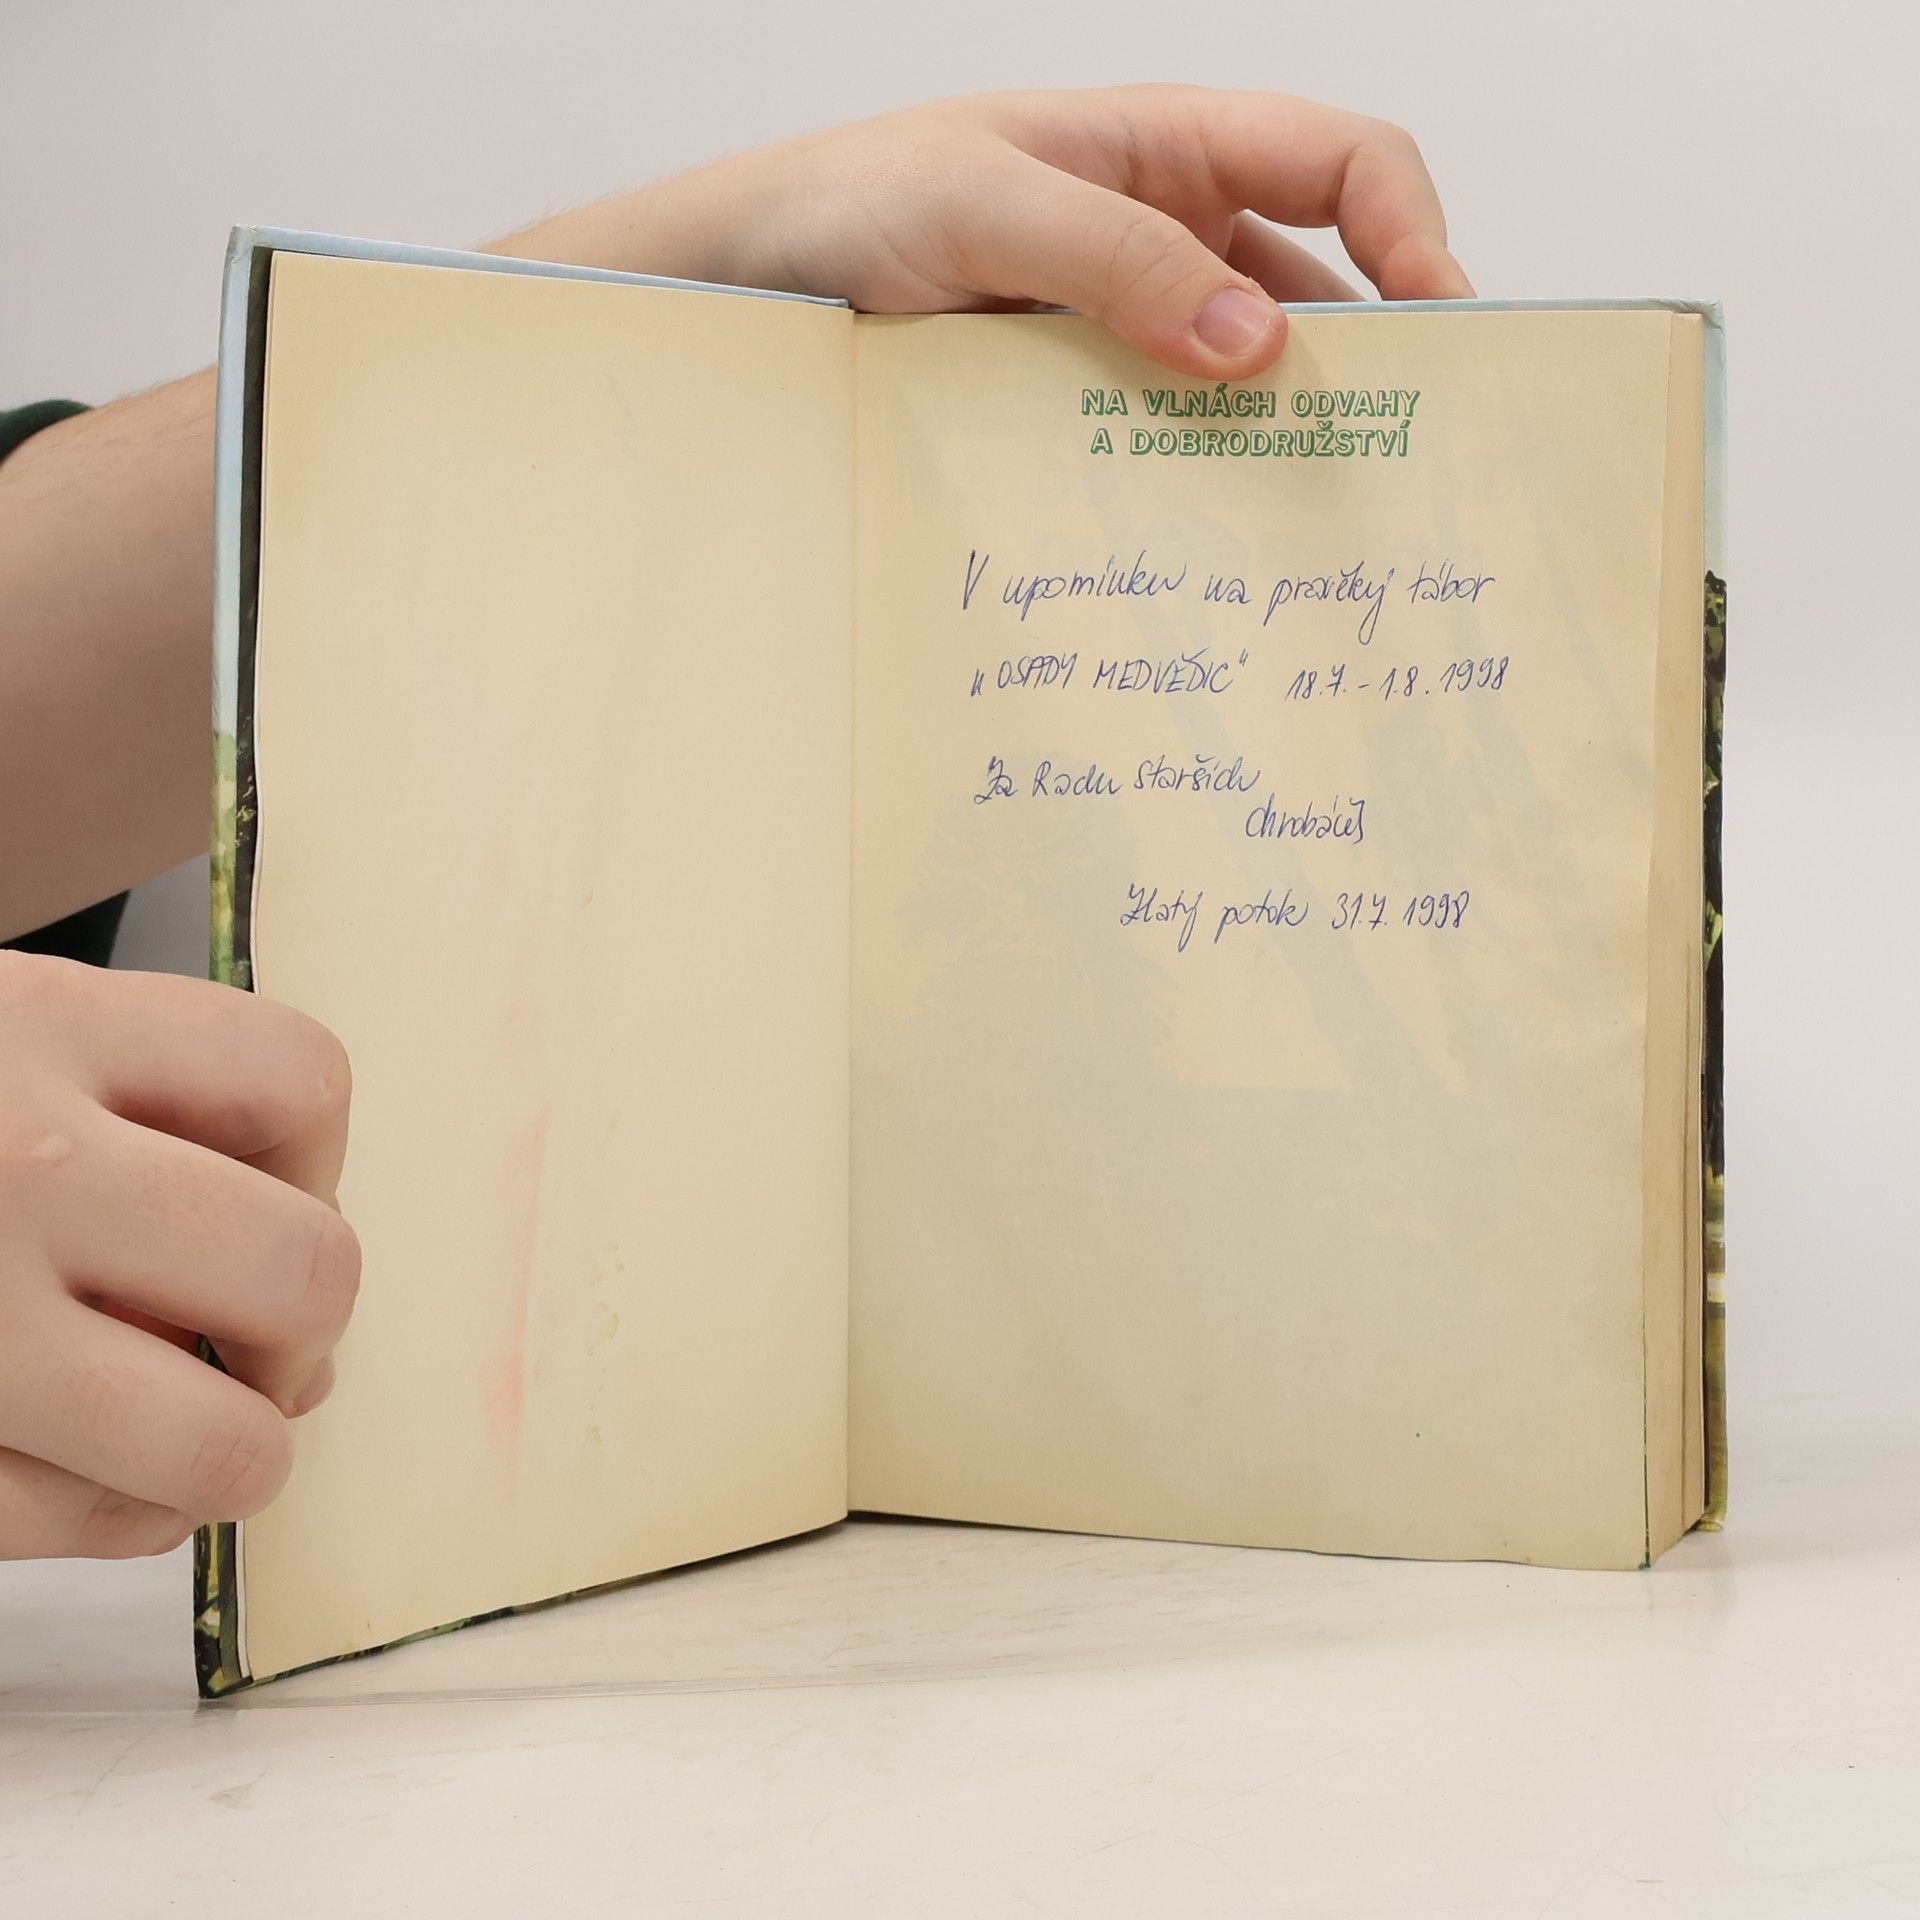 NA VLNÁCH ODVAHY
A DOBRODRUŽSTVÍ
V upomínku na pravěký tábor
„OSADY MEDVĚDIC" 18.7.-1.8.1998
Za Radu starších
Zlatý potok 31.7.1998